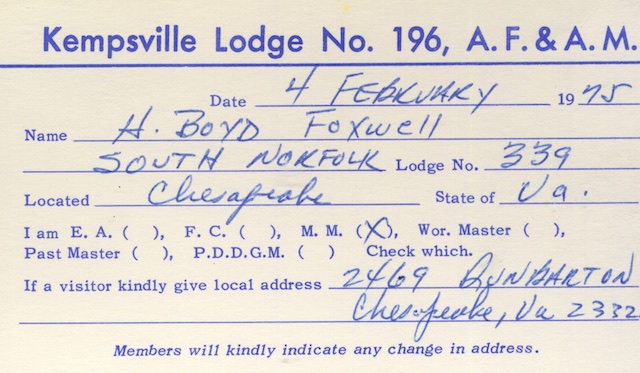 Kempsville Lodge No. 196, A. F. & A. M.
Date 4 February 1975
Name H. Boyd Foxwell
South Norfolk Lodge No. 339
Located Chesapeake State of Va.
I am E. A. ( ), F. C. ( ), M. M. (X), Wor. Master ( ),
Past Master ( ), P.D.D.G.M. ( ) Check which.
If a visitor kindly give local address 2469 Dunbarton
Chesapeake, Va 2332
Members will kindly indicate any change in address.